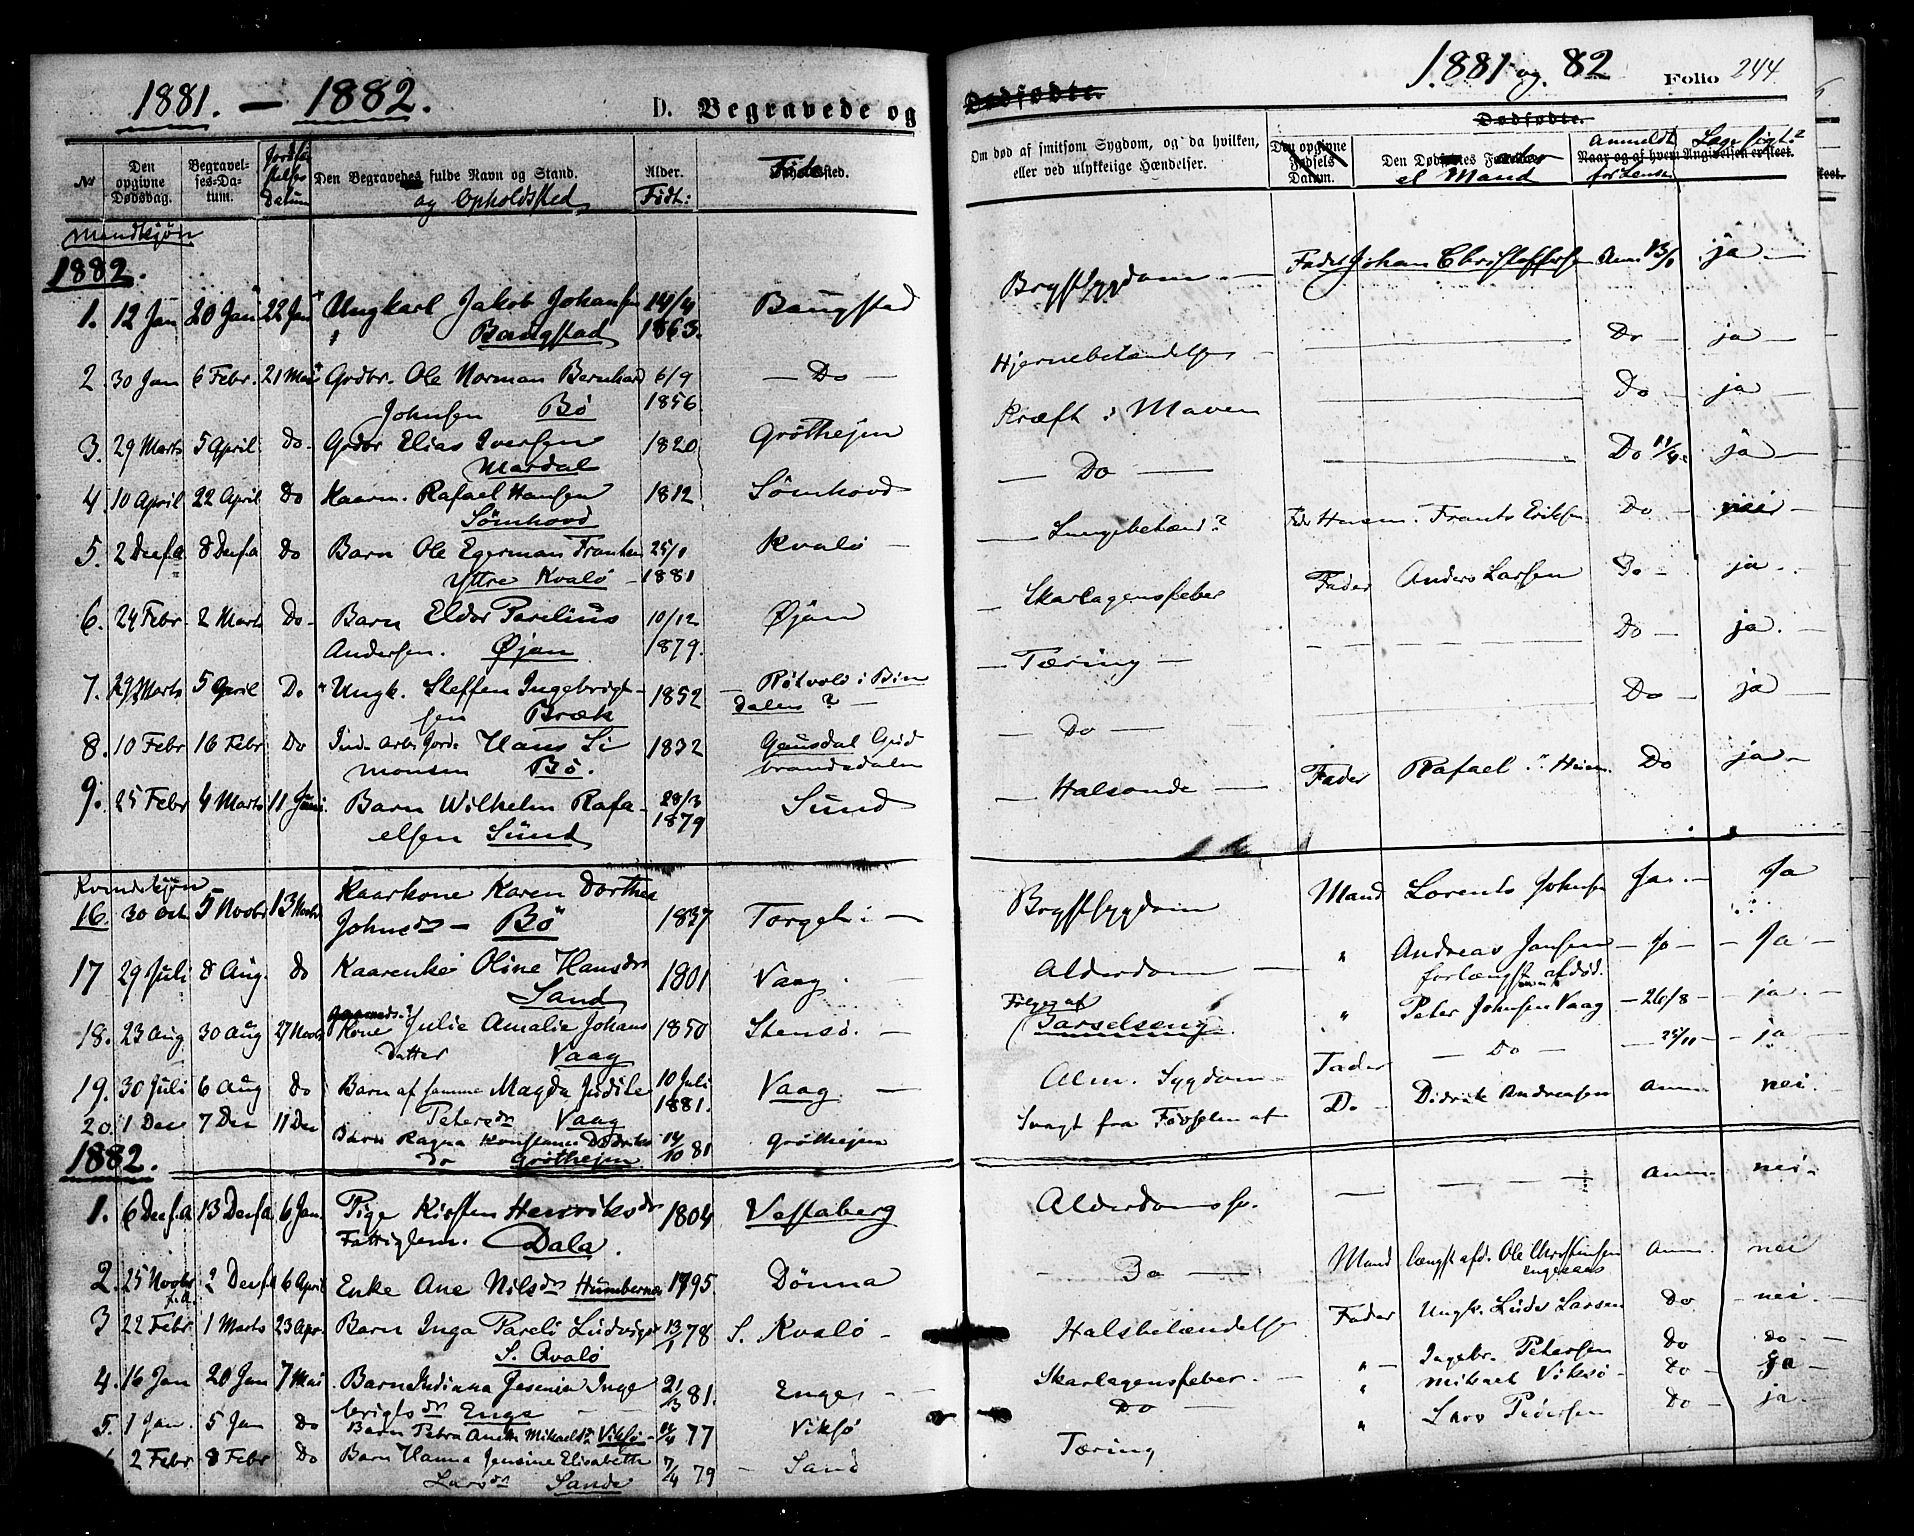 1881. — 1882.
D. Begravede og
№
Den opgivne Dødsdag.
Begravelses-Datum.
Datum
Den Begravedes fulde Navn og Stand.
og Opholdsted
Alder.
Født:
Mandkjøn
1882.
1. 12 Jan 20 Jan 22 Jan Ungkarl Jakob Johansen 14/4 Baugstad
Baugstad 1863.
2. 30 Jan 6 Febr. 21 Mai Gndbr. Ole Norman Bernhard 6/9 — Do —
Johnsen Bö 1856.
3. 29 Marts 5 April Do Gndbr Elias Iversen 1820 Gröthejen
Mardal
4 10 April 22 April Do Kaarm. Rafael Hansen 1812 Sömhovd
Sömhovd
5. 2 Decf.a 8 Decf.a Do Barn Ole Egerman Frantsen 25/1 Kvalö —
Yttre Kvalö — 1881
6. 24 Febr 2 Marts Do- Barn Eldor Parelius 10/12 Øjan
Andersen. Øjan 1879.
7. 29 Marts 5 April Do Ungk. Steffen Ingebrigt- 1852 Rötvold i Bin
sen Bræk dalen? —
8. 10 Febr 16 Febr Do Ind. Arb. Hans Si 1832 Gausdal Gud
monsen Bö. brandsdalen
9. 25 Febr 4 Marts 11 Juni Barn Wilhelm Rafa- 28/3 Sund
elsen Sund 1879
Kvindekjön
16. 30 Oct 5 Novbr 13 Novbr Kaarkone Karen Dorthea 1837 Torget: —
Johnsdr — Bö
17 29 Juli 8 Aug. Do Kaarenke Oline Hansdr 1801 Vaag. -
Sand
18. 23 Aug 30 Aug 27 Novbr Kone Julie Amalie Johans 1850 Stensö. —
datter Vaag
19. 30 Juli 6 Aug Do Barn af samme Magda Judite 10 Juli Vaag. —
Petersdr Vaag 1881.
20. 1 Dec 7 Dec 11 Dec Barn Ragna Konstanse Didriks 14/10 81 Gröthejen
do Gröthejen
1882.
1. 6 Decf.a 13 Decf.a 6 Jan. Pige Kirsten Henriksdr 1804 Vestaberg
Fattiglem. Dala.
2 25 Novbr f.A. 2 Decf.a 6 April Enke Ane Nilsdr Humbernes 1795. Dönna
3 22 Febr 1 Marts 23 Apr. Barn Inga Pareli Ludvigsdr 13/1 78 S. Kvalö -
S. Qvalö
4. 16 Jan 20 Jan 7 Mai Barn Indianna Jesenia Inge 21/3 81. Enge -
brigtsdr Enge
5. 1 Jan. 5 Jan Do Barn Petra Anette Mikaelsdr Viksö 77 Viksö
2 Febr 8 Febr Do Barn Hanna Jensine Elisabeth 7/4 79 — Sand
Larsdr Sande
Dødfødte.
1881 og 82
Folio 244
Om død af smitsom Sygdom, og da hvilken,
eller ved ulykkelige Hændelser.
Den opgivne Fødsels Datum.
Dødfødte.
el Mand
Anmeldt for Lensm.
Naar og af hvem Angivelsen er sket.
Brystsygdom — Fader Johan Christoffersen Anm 13/1 ja —
Hjernebetændelse — Do — ja —
Kræft i Maven Do — ja
— Do — Do 11/4 ja —
— Lungebetænd? Husm. Frants Eriksen Do — nei —
— Skarlagensfeber Fader Anders Larsen Do — ja.
— Tæring — Do — ja. —
— Do — Do — ja —
— Halsonde — Fader Rafael Do ja —
Brystsygdom Mand Lorents Johnsen Ja. — Ja
Alderdom — " Andreas Jansen — Jo — — Ja —
forlængst afdöd.
Følge af Barselseng. " Peter Johnsen Vaag — 26/8 — ja. —
Alm. Sygdom — Fader — Do — — 25/10 — ja
Svagt fra Fødselen af Do — Didrik Andreasen Anm nei.
Alderdomssv. — — Anm. nei.
— Do — Mand længst afd. Ole Christensen Anm. nei
Engesaas
Halsbetændelse Fader Ungk. Luder Larsen Do — nei. —
Skarlagensfeber. — " — Ingebr. Petersen Do do. —
Do — " Mikael Viksö — Do — ja —
Tæring " Lars Pedersen Do — ja.